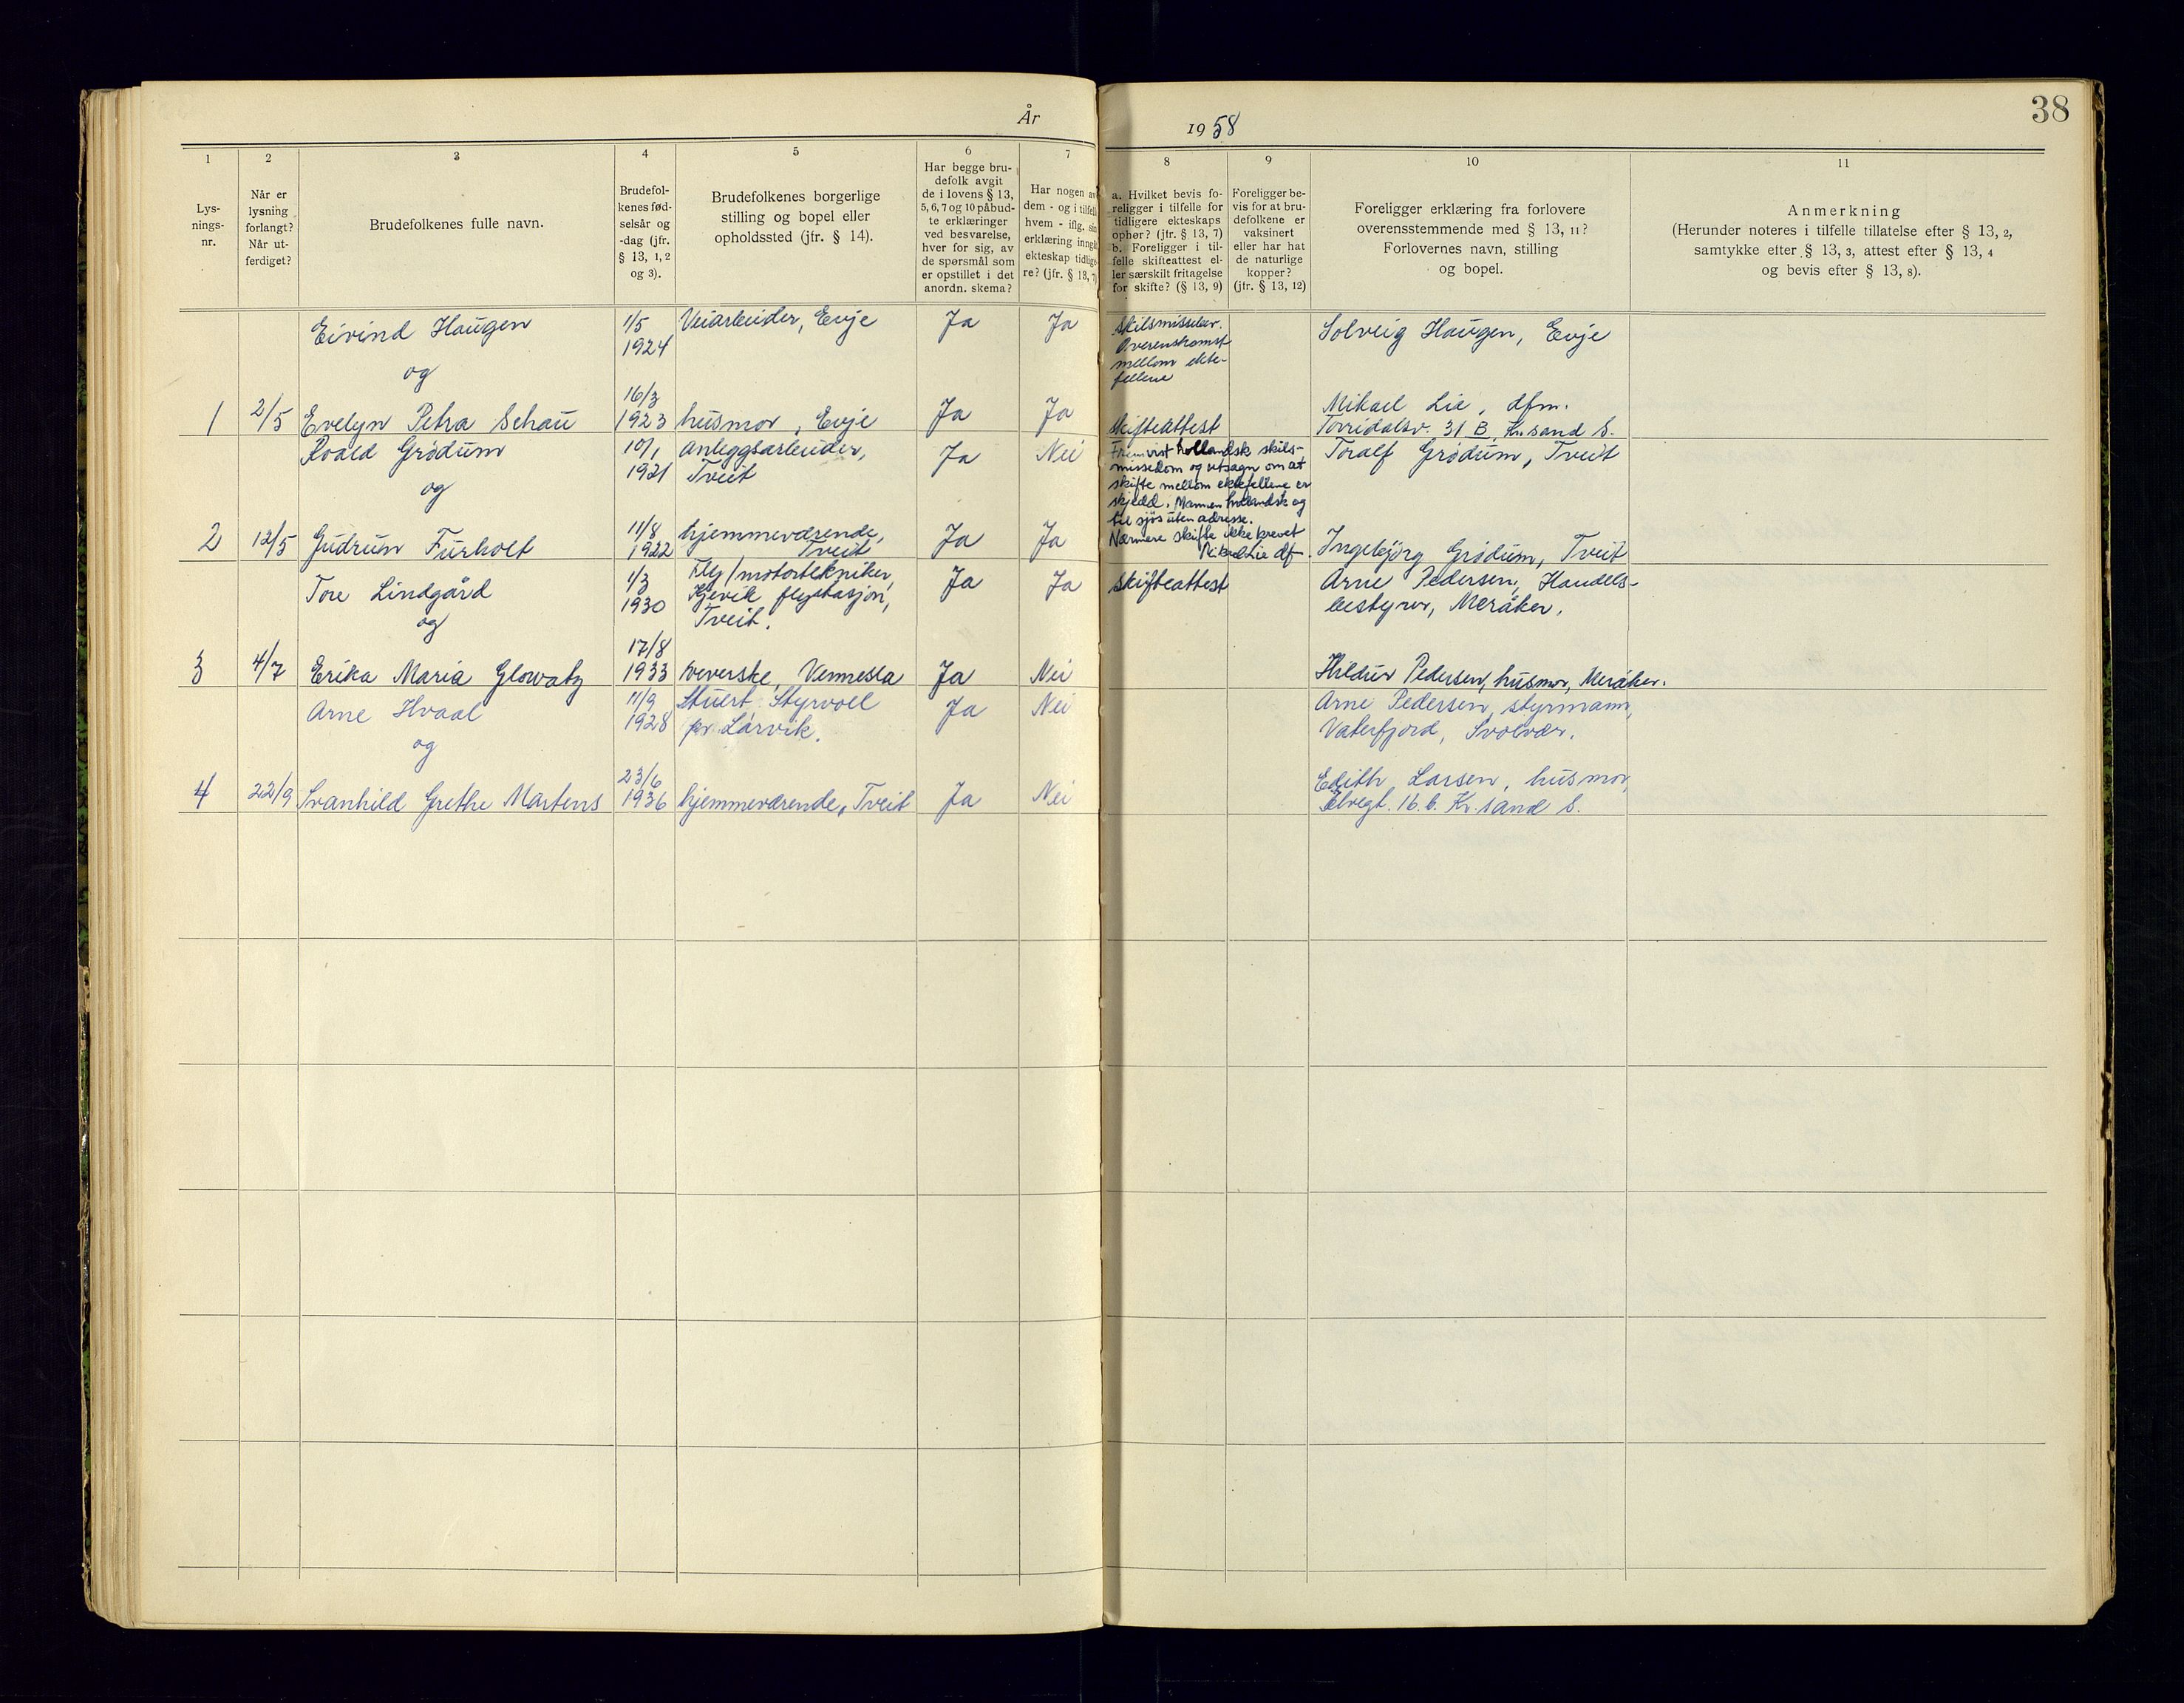 38
År
1958
1
Lys-
nings-
nr.
2
Når er
lysning
forlangt?
Når ut-
ferdiget?
3
Brudefolkenes fulle navn.
4
Brudefol-
kenes fød-
selsår og
-dag (jfr.
§ 13, 1, 2
og 3).
5
Brudefolkenes borgerlige
stilling og bopel eller
opholdssted (jfr. § 14).
6
Har begge bru-
defolk avgit
de i lovens § 13,
5, 6, 7 og 10 påbud-
te erklæringer
ved besvarelse,
hver for sig, av
de spørsmål som
er opstillet i det
anordn. skema?
7
Har nogen av
dem - og i tilfelle
hvem - iflg. sin
erklæring inngått
ekteskap tidlige-
re? (jfr. § 13, 7)
8
a. Hvilket bevis fo-
religger i tilfelle for
tidligere ekteskaps
ophør? (jfr. § 13, 7)
b. Foreligger i til-
felle skifteattest el-
ler særskilt fritagelse
for skifte? (§ 13, 9)
9
Foreligger be-
vis for at bru-
defolkene er
vaksinert
eller har hat
de naturlige
kopper?
(jfr. § 13, 12)
10
Foreligger erklæring fra forlovere
overensstemmende med § 13, 11?
Forlovernes navn, stilling
og bopel.
11
Anmerkning
(Herunder noteres i tilfelle tillatelse efter § 13, 2,
samtykke efter § 13, 3, attest efter § 13, 4
og bevis efter § 13, 8).
Eivind Haugen
1/5
1924
Veiarbeider, Evje
Ja
Ja
Skilsmissebev.
Overenskomst
mellom ekte-
fellene
Solveig Haugen, Evje
og
1
2/5
Evelyn Petra Schau
16/3
1923
husmor, Evje
Ja
Ja
Skifteattest
Mikael Lie, dfm.
Torridalsv. 31 B, Kr.sand S.
Roald Grødum
10/1
1921
Anleggsarbeider,
Tveit
Ja
Nei
Fremvist hollandsk skils-
missedom og utsagn om at
skifte mellom ektefellene er
skjedd. Mannen hollandsk og
til sjøs uten adresse.
Nærmere skifte ikke krevet
Mikael Lie df.
Toralf Grødum, Tveit
og
2
12/5
Gudrun Furholt
11/8
1922
hjemmeværende,
Tveit
Ja
Ja
Ingebjørg Grødum, Tveit
Tore Lindgård
1/3
1930
Fly/motortekniker,
Kjevik flystasjon,
Tveit.
Ja
Ja
Skifteattest
Arne Pedersen, Handels-
bestyrer, Meråker.
og
3
4/7
Erika Maria Glowatz
17/8
1933
veverske, Vennesla
Ja
Nei
Hildur Pedersen, husmor, Meråker.
Arne Hvaal
11/9
1928
Stuert Styrvoll
pr. Larvik.
Ja
Nei
Arne Pedersen, styrmann,
Vaterfjord, Svolvær.
og
4
22/9
Svanhild Grethe Martens
23/6
1936
hjemmeværende, Tveit
Ja
Nei
Edith Larsen, husmor,
Elvegt. 16.b. Kr.sand S.